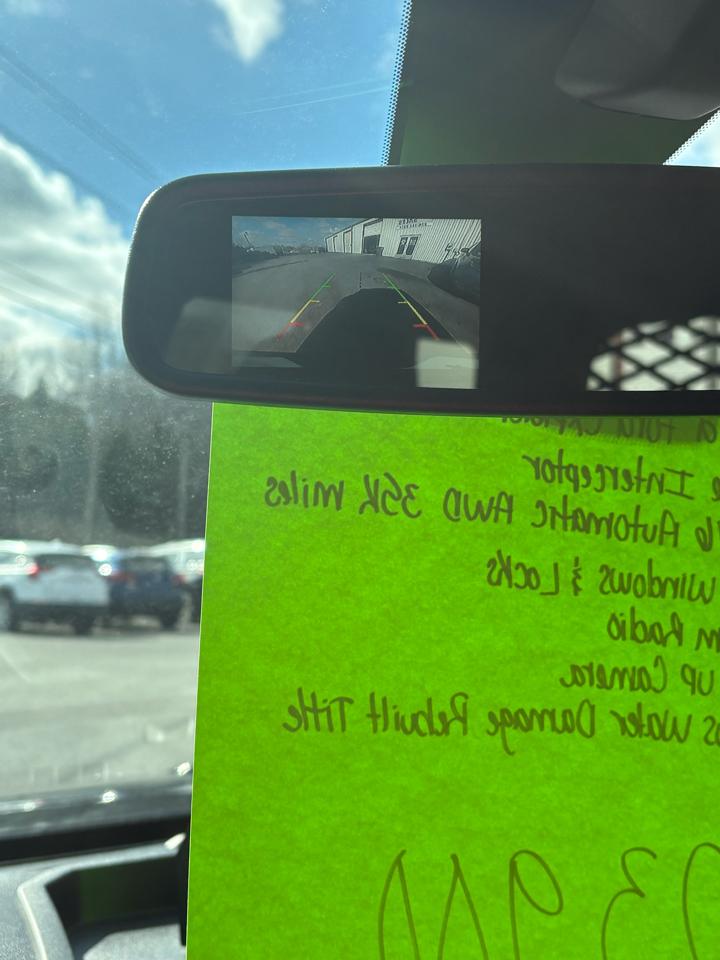 Ford Explorer
Interceptor
V6 Automatic AWD 35K miles
Windows & Locks
Radio
up Camera
Water Damage Rebuilt Title